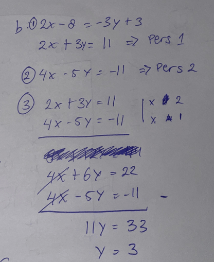 b. ① 2x - 8 = -3y + 3
2x + 3y = 11 => Pers 1
② 4x - 5y = -11 => Pers 2
③ 2x + 3y = 11 | x 2
4x - 5y = -11 | x 1
4x + 6y = 22
4x - 5y = -11 -
11y = 33
y = 3